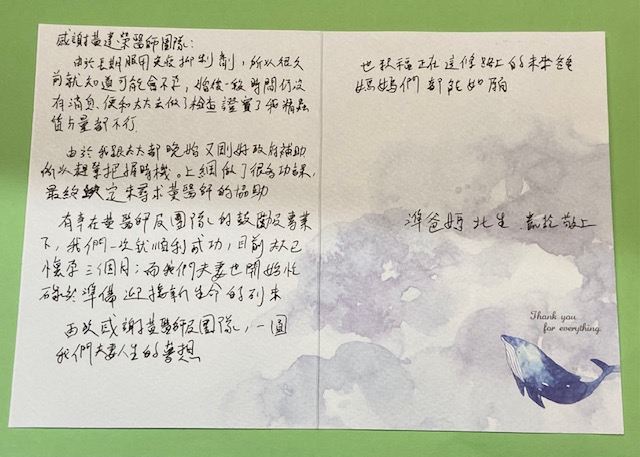 感謝黃建榮醫師團隊：
由於長期服用免疫抑制劑，所以很久
前就知道可能會不孕，婚後一段時間仍沒
有消息，便和太太去做了檢查證實了我精蟲
值与量都不行．
由於我跟太太都晚婚又剛好政府補助
所以趕緊把握時機。上網做了很多功課，
最終決定來尋求黃醫師的協助
有幸在黃醫師及團隊的鼓勵及專業
下，我們一次就順利成功，目前太太已
懷孕三個月；而我們夫妻也開始忙
碌於準備迎接新生命的到來
再次感謝黃醫師及團隊，一圓
我們夫妻人生的夢想
也祝福正在這條路上的未來爸
媽媽們都能如願
準爸媽 敬上
Thank you
for everything.